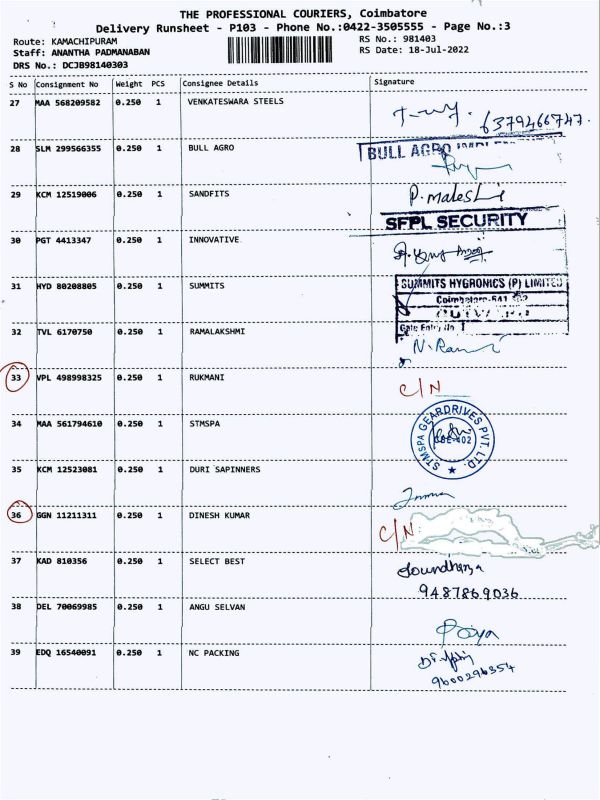 THE PROFESSIONAL COURIERS, Coimbatore
Delivery Runsheet - P103 - Phone No.:0422-3505555 - Page No.:3
Route: KAMACHIPURAM RS No.: 981403
Staff: ANANTHA PADMANABAN RS Date: 18-Jul-2022
DRS No.: DCJB98140303
S No Consignment No Weight PCS Consignee Details Signature
27 MAA 568209582 0.250 1 VENKATESWARA STEELS
6379466747.
28 SLM 299566355 0.250 1 BULL AGRO BULL AGRO
29 KCM 12519006 0.250 1 SANDFITS
SFPL SECURITY
30 PGT 4413347 0.250 1 INNOVATIVE
31 HYD 80208805 0.250 1 SUMMITS SUMMITS HYGRONICS (P) LIMITED
Coimbatore-641
Gate Entry No
32 TVL 6170750 0.250 1 RAMALAKSHMI
33 VPL 498998325 0.250 1 RUKMANI C/N
34 MAA 561794610 0.250 1 STMSPA STMSPA GEARDRIVES PVT. LTD.
35 KCM 12523081 0.250 1 DURI SAPINNERS
36 GGN 11211311 0.250 1 DINESH KUMAR C/N
37 KAD 810356 0.250 1 SELECT BEST
9487869036
38 DEL 70069985 0.250 1 ANGU SELVAN
39 EDQ 16540091 0.250 1 NC PACKING
9600296354